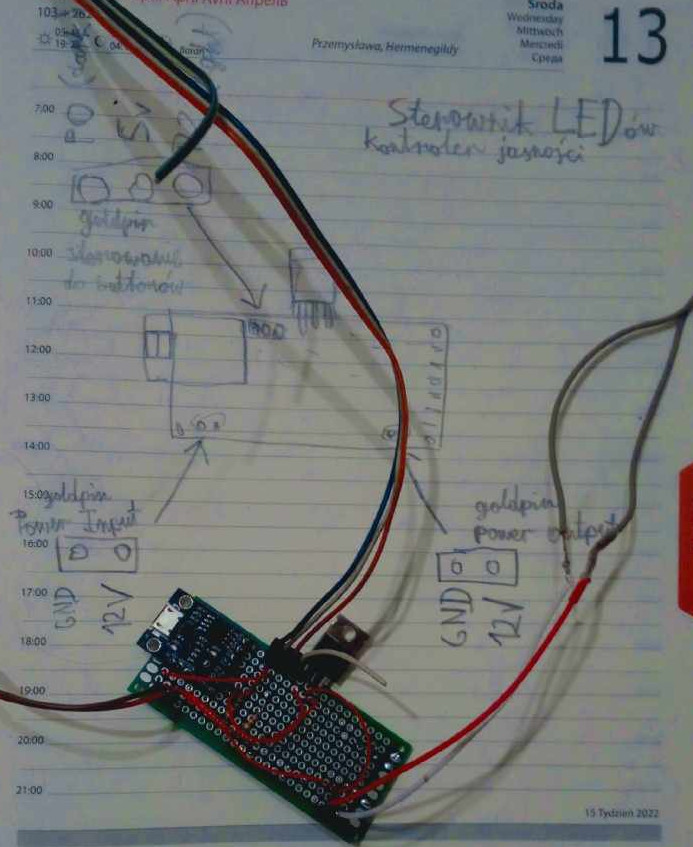 Апрель
103
Środa
Wednesday
Mittwoch
Mercredi
Среда
13
Przemysława, Hermenegildy
Baran
Sterownik LEDów
kontroler jasności
P0
5V
7:00
8:00
9:00
10:00
11:00
12:00
13:00
14:00
15:00
16:00
17:00
18:00
19:00
20:00
21:00
goldpin
sterowanie
do buttonów
goldpin
Power Input
GND
12V
goldpin
power output
GND
12V
15 Tydzień 2022